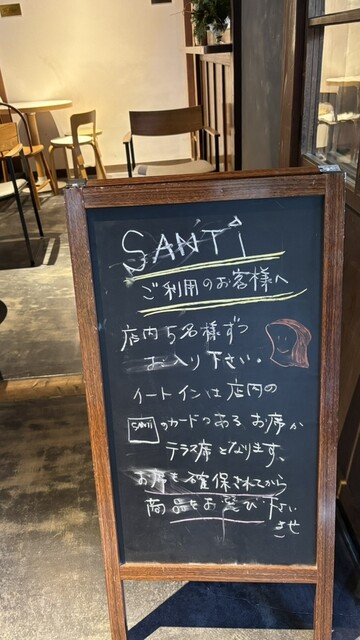 SANTi
ご利用のお客様へ
店内5名様ずつ
お入り下さい。
イートインは店内の
SANTiのカードのあるお席か
テラス席となります。
お席を確保されてから
商品をお選び下さい
ませ